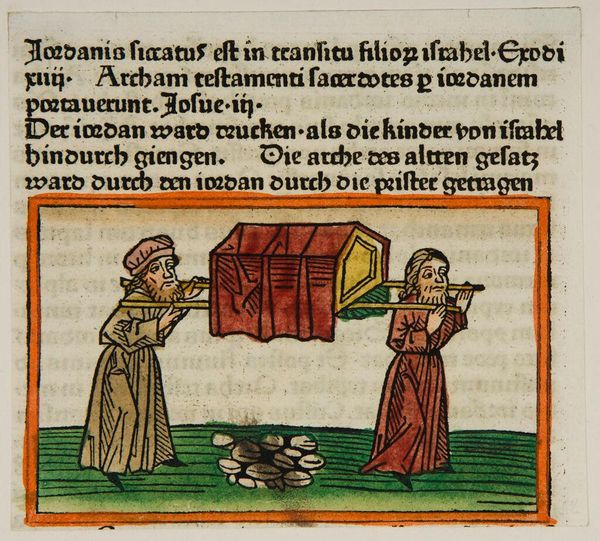 Jordanis siccatus est in transitu filioꝝ israhel· Exodi
xiiij· Archam testamenti sacerdotes ꝑ iordanem
portaverunt. Josue·iij·
Der iordan ward trucken·als die kinder von israhel
hindurch giengen. Die arche des altten gesatz
ward durch den iordan durch die prister getragen